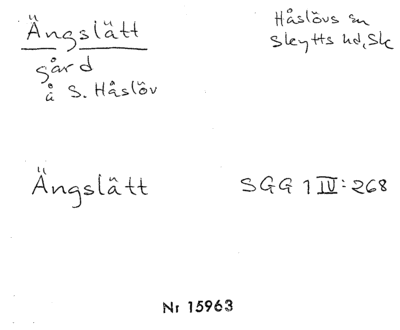 Ängslätt
gård
å S. Håslöv
Håslövs sn
Skytts hd, Sk
Ängslätt
SGG 1 IV: 268
Nr 15963